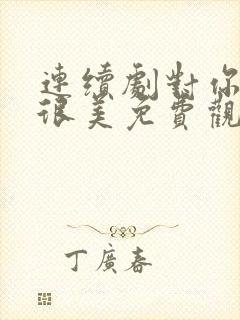 連續劇對你
很美免費觀
丁廣春